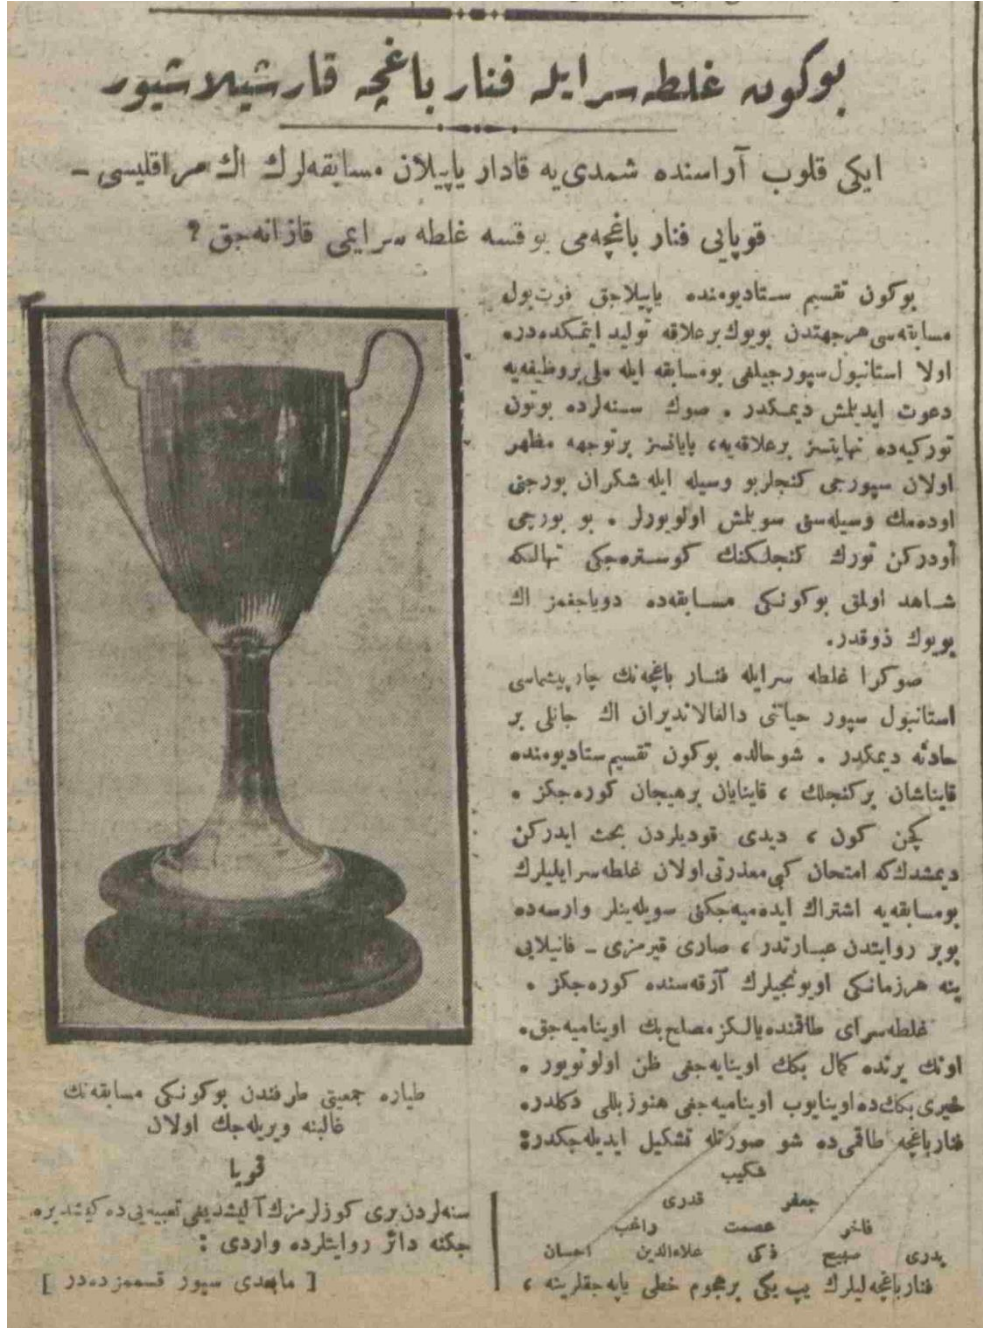 بوكون غلطه‌سرايله فنار باغچه قارشيلاشيور
ايكى قلوب آراسنده شمدى‌يه قادار ياپيلان مسابقه‌لرك اك مراقليسى ــ
قوپايى فنار باغچه‌مى يوقسه غلطه سرايمى قازانه‌جق ؟
بوكون تقسيم ستاديومنده ياپيلاجق فوت‌بول
مسابقه‌سى هرجهتدن بويوك برعلاقه توليد ايتمكده‌در.
اولا استانبول سپورجيلغى بومسابقه ايله ملى بروظيفه‌يه
دعوت ايديلمش ديمكدر . صوك سنه‌لرده بوتون
توركيه‌ده نهايتسز برعلاقه‌يه، پايانسز برتوجهه مظهر
اولان سپورجى كنجلربو وسيله ايله شكران بورجنى
اوده‌مك وسيله‌سنى بولمش اولويورلر . بو بورجى
أودركن تورك كنجلكنك كوستره‌جكى تهالكه
شاهد اولمق بوكونكى مسابقه‌ده دوياجغمز اك
بويوك ذوقدر.
صوكرا غلطه سرايله فنار باغچه‌نك چارپيشماسى
استانبول سپور حياتنى دالغالانديران اك جانلى بر
حادثه ديمكدر . شوحالده بوكون تقسيم ستاديومنده
قايناشان بركنجلك ، قاينايان برهيجان كوره‌جكز .
كچن كون ، ديدى قوديلردن بحث ايدركن
ديمشدك‌كه امتحان كبى معذرتى اولان غلطه‌سرايليلرك
بومسابقه‌يه اشتراك ايده‌ميه‌جكنى سويله‌ينلر وارسه‌ده
بوبر روايتدن عبارتدر ، صارى قيرمزى ــ فانيلايى
ينه هرزمانكى اويونجيلرك آرقه‌سنده كوره‌جكز .
غلطه‌سراى طاقمنده يالكز مصلح بك اوينامیه‌جق.
اونك يرنده كمال بكك اوينايه‌جغى ظن اولونويور .
خيرى بكك‌ده اوينايوب اوينامیه‌جغى هنوز بللى دكلدر.
فنارباغچه طاقمى‌ده شو صورتله تشكيل ايديله‌جكدر:
شكيب
جعفر قدرى
فاخر عصمت راغب
بدرى سبيح ذكى علاءالدين احسان
فنارباغچه‌ليلرك يپ يكى برهجوم خطى ياپه‌جقلرينه ،
طياره جمعيتى طرفندن بوكونكى مسابقه‌نك
غالبنه ويريله‌جك اولان
قوپا
سنه‌لردن برى كوزلرمزك آليشديغى تعبيه‌يى‌ده
جكنه دائر روايتلرده واردى :
[ مابعدى سپور قسممزده‌در ]